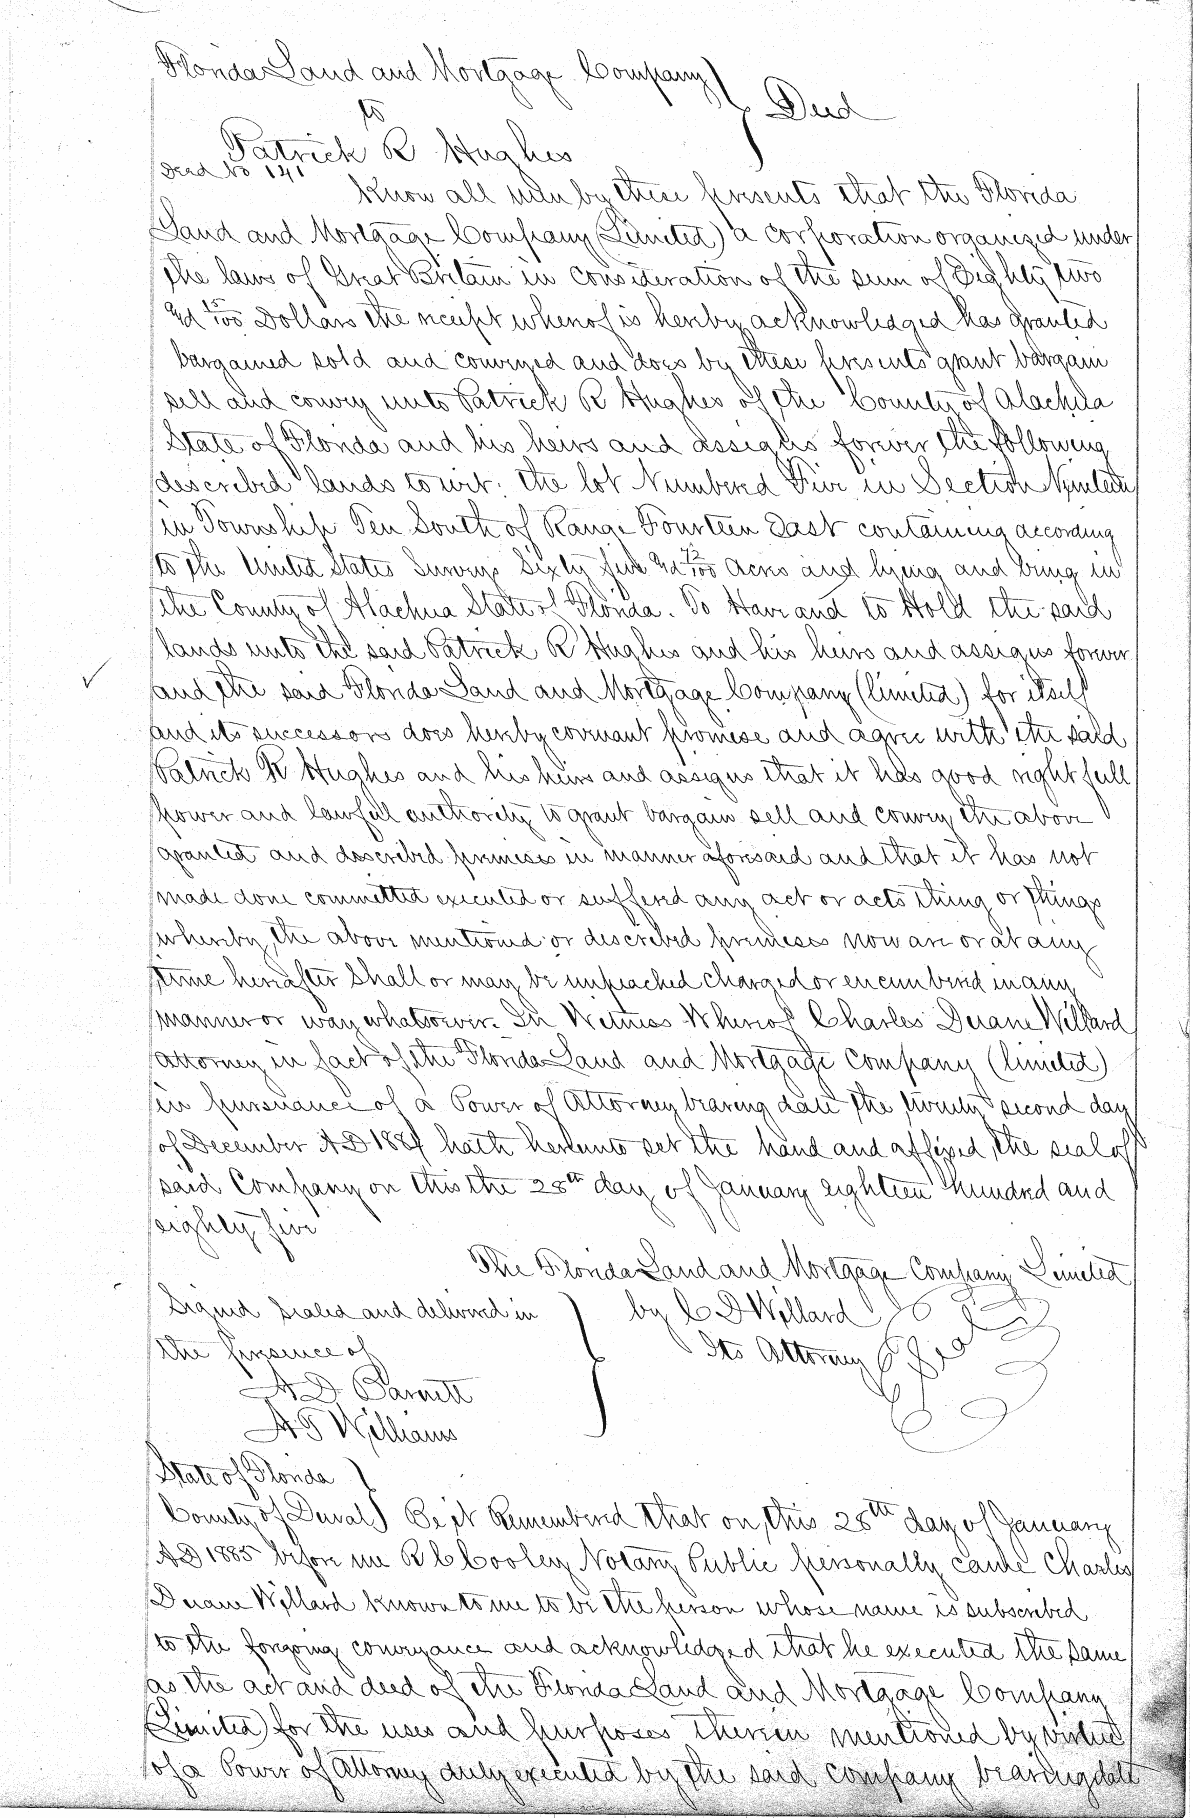 Florida Land and Mortgage Company
to
Deed
Patrick R Hughes
Deed No 141
Know all men by these presents that the Florida
Land and Mortgage Company (Limited) a corporation organized under
the laws of Great Britain in consideration of the sum of Eighty two
&d 15/100 Dollars the receipt whereof is hereby acknowledged has granted
bargained sold and conveyed and does by these presents grant bargain
sell and convey unto Patrick R Hughes of the County of Alachua
State of Florida and his heirs and assigns forever the following
described lands to wit: the lot Numbered Five in Section Nineteen
in Township Ten South of Range Fourteen East containing according
to the United States Surveys Sixty five &d 72/100 Acres and lying and being in
the County of Alachua State of Florida. To Have and to Hold the said
lands unto the said Patrick R Hughes and his heirs and assigns forever
and the said Florida Land and Mortgage Company (limited) for itself
and its successors does hereby covenant promise and agree with the said
Patrick R Hughes and his heirs and assigns that it has good right full
power and lawful authority to grant bargain sell and convey the above
granted and described premises in manner aforesaid and that it has not
made done committed executed or suffered any act or acts thing or things
whereby the above mentioned or described premises now are or at any
time hereafter Shall or may be impeached charged or encumbered in any
manner or way whatsoever. In Witness Whereof Charles Duane Willard
Attorney in fact of the Florida Land and Mortgage Company (limited)
in pursuance of a Power of Attorney bearing date the twenty second day
of December AD 1884 hath hereunto set the hand and affixed the seal of
said Company on this the 28th day of January eighteen hundred and
eighty five
The Florida Land and Mortgage Company Limited
Signed Sealed and delivered in
by C D Willard
the presence of
Its Attorney
Seal
A D Barnett
A T Williams
State of Florida
County of Duval) Be it Remembered that on this 28th day of January
AD 1885 before me R C Cooley Notary Public personally came Charles
Duane Willard known to me to be the person whose name is subscribed
to the forgoing conveyance and acknowledged that he executed the same
as the act and deed of the Florida Land and Mortgage Company
(Limited) for the uses and purposes therein mentioned by virtue
of a Power of Attorney duly executed by the said company bearing date